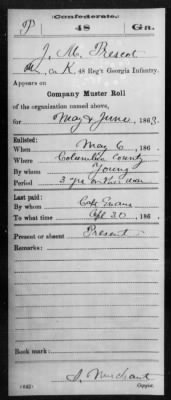 Confederate.
P 48 Ga.
J. M. Prescot
Co. K, 48 Reg't Georgia Infantry.
Appears on
Company Muster Roll
of the organization named above,
for May & June, 1863.
Enlisted:
When May 6, 186 .
Where Columbia County
By whom Young
Period 3 yrs or the war
Last paid:
By whom Capt Evans
To what time Apl 30, 186 .
Present or absent Present
Remarks:
Book mark:
S. Merchant
(642) Copyist.